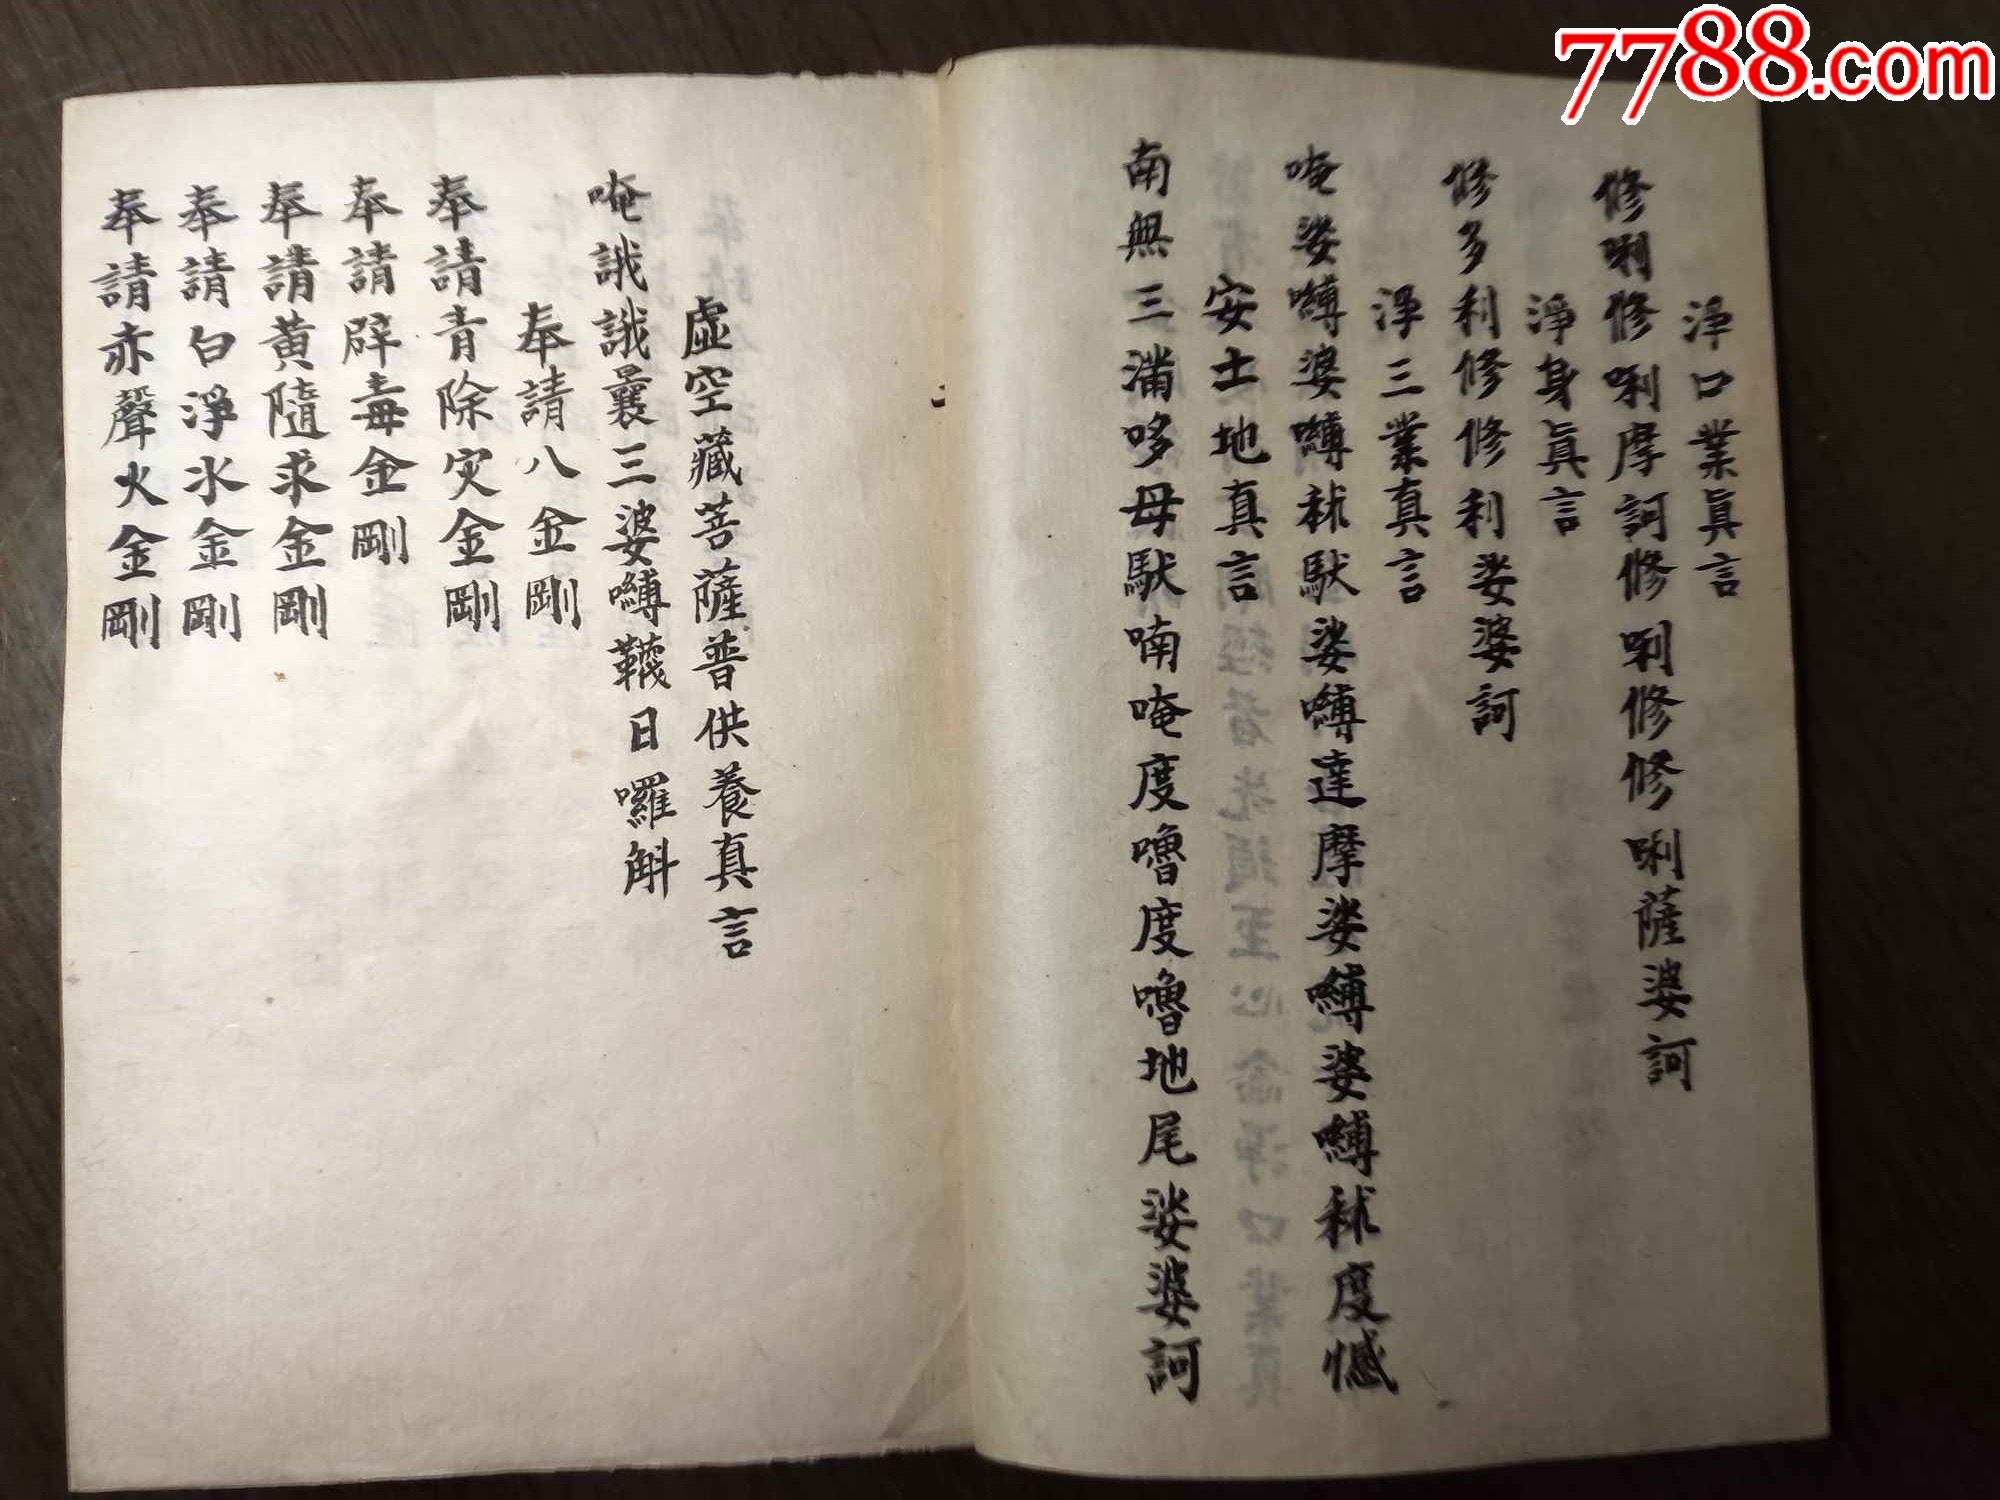 7788.com
淨口業眞言
修唎修唎摩訶修唎修修唎薩婆訶
淨身眞言
修多利修修利娑婆訶
淨三業真言
唵娑嚩婆嚩秫馱娑嚩達摩娑嚩婆嚩秫度憾
安土地真言
南無三滿哆母馱喃唵度嚕度嚕地尾娑婆訶
虛空藏菩薩普供養真言
唵誐誐曩三婆嚩韈日囉斛
奉請八金剛
奉請青除灾金剛
奉請辟毒金剛
奉請黃隨求金剛
奉請白淨水金剛
奉請赤聲火金剛